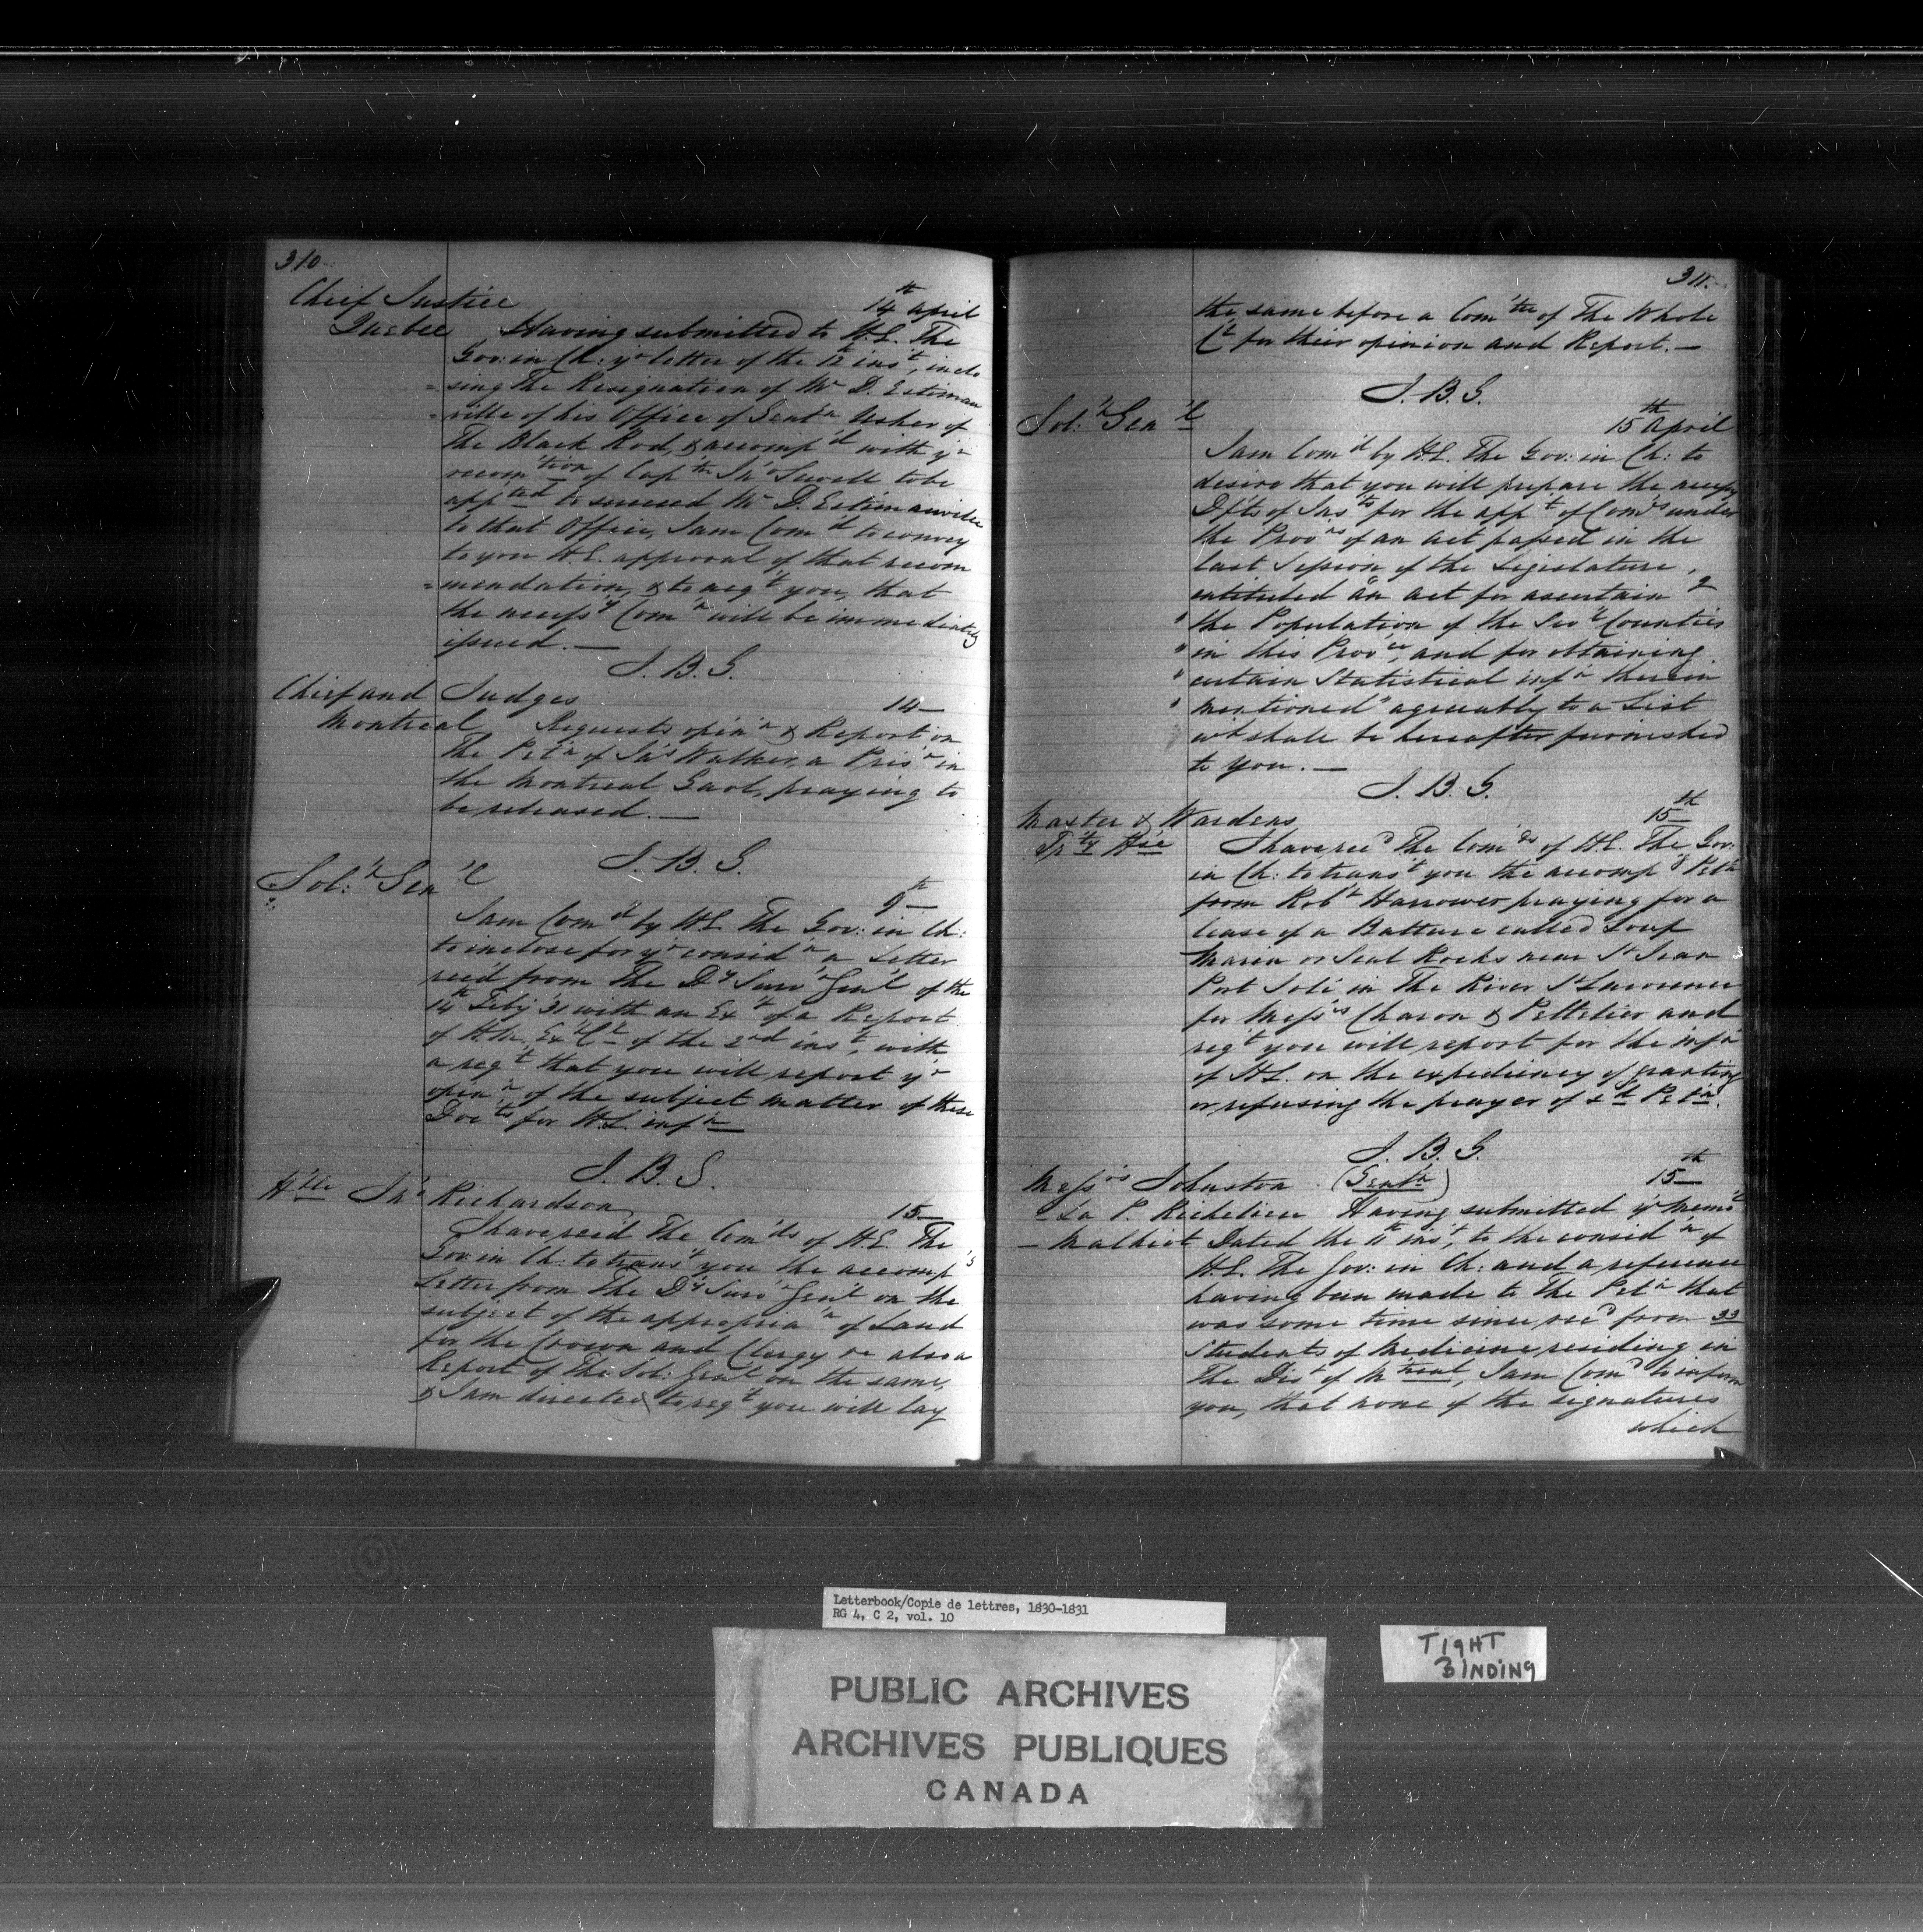 310
Chief Justice
Quebec
14th April
Having submitted to H.E. The
Gov: in Ch: yr letter of the 12t inst, inclo
=sing The Resignation of Mr D. Estiman
=ville of his Office of Gentn Usher of
The Black Rod, & accompd with yr
recomtion of Captn Jno Sewell to be
appted to succeed Mr D. Estimauville
to that Office, I am Comd to convey
to you H.E. approval of that recom
=mendation, & to acqt you, that
the necessy Comn will be immediately
issued. —
J. B. G.
Chief and Judges
Montreal
14—
Requests opinn & Report on
The Petn of Jas Walker, a Prisr in
the Montreal Gaol, praying to
be released. —
J. B. G.
Sol:r Genl
9th—
I am Comd by H.E. The Gov: in Ch:
to inclose for yr considn a Letter
recd from The Dy Survr Genl of the
14th Feby 31 with an Ext of a Report
of H.M. Ex Ct of the 2nd inst, with
a reqt that you will report yr
opinn of the subject matter of these
Docts for H.E. infn —
J. B. G.
Hble Jno Richardson
15—
I have recd The Comds of H.E. The
Gov: in Ch: to transt you the accompg
Letter from The Dy Survr Genl on the
subject of the approprian of Land
for the Crown and Clergy ve also a
Report of The Sol: Genl on the same,
& I am directed to reqt you will lay
311.
the same before a Comttee of The Whole
Ct for their opinion and Report. —
J. B. G.
Sol:r Genl
15th April
I am Comd by H.E. The Gov: in Ch: to
desire that you will prepare the necessy
Dfts of Insts for the appt of Comrs under
the Provns of an Act passed in the
last Session of the Legislature,
entituled "An Act for ascertaing
" the Population of the Sevl Counties
" in this Provce, and for obtaining
" certain Statistical infn therein
" mentioned" agreeably to a List
wh shall be hereafter furnished
to you. —
J. B. G.
Master & Wardens
Trty Hse
15th
I have recd The Comds of H.E. The Gov:
in Ch: to transt you the accompg Petn
from Robt Harrower praying for a
lease of a Batture called Loup
Marin or Seal Rocks near St Jean
Port Joli in The River St Lawrence
for Messrs Charon & Pelletier and
reqt you will report for the infn
of H.E. on the expediency of granting
or refusing the prayer of sd Petn.
J. B. G.
Messrs Johnston (Gentn)
- La P. Richelieu
- Malhiot
15th—
Having submitted yr Meml
Dated the 11th inst, to the considn of
H.E. The Gov: in Ch: and a reference
having been made to The Petn that
was some time since recd from 33
Students of Medicine residing in
The Dist of Mtreal, I am Comd to inform
you, that none of the signatures
which
Letterbook/Copie de lettres, 1830-1831
RG 4, C 2, vol. 10
TIGHT
BINDING
PUBLIC ARCHIVES
ARCHIVES PUBLIQUES
CANADA